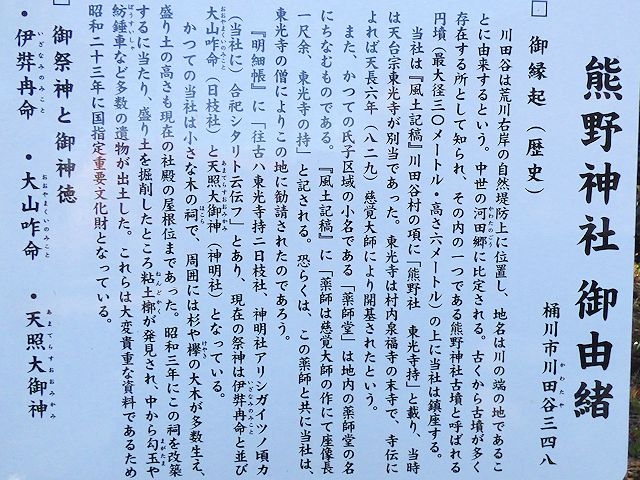 熊野神社 御由緒
桶川市川田谷三四八
かわたや
□ 御縁起（歴史）
川田谷は荒川右岸の自然堤防上に位置し、地名は川の端の地であるこ
とに由来するという。中世の河田郷に比定される。古くから古墳が多く
存在する所として知られ、その内の一つである熊野神社古墳と呼ばれる
円墳（最大径三〇メートル・高さ六メートル）の上に当社は鎮座する。
当社は『風土記稿』川田谷村の項に「熊野社 東光寺持」と載り、当時
は天台宗東光寺が別当であった。東光寺は村内泉福寺の末寺で、寺伝に
よれば天長六年（八二九）慈覚大師により開基されたという。
また、かつての氏子区域の小名である「薬師堂」は地内の薬師堂の名
にちなむものである。『風土記稿』に「薬師は慈覚大師の作にて座像長
一尺余、東光寺の持」と記される。恐らくは、この薬師と共に当社は、
東光寺の僧によりこの地に勧請されたのであろう。
『明細帳』に「往古ハ東光寺持ニ日枝社、神明社アリシガイツノ頃カ
（当社に）合祀シタリト云伝フ」とあり、現在の祭神は伊弉冉命と並び
いざなみのみこと
大山咋命（日枝社）と天照大御神（神明社）となっている。
おおやまくいのみこと
あまてらすおおみかみ
かつての当社は小さな木の祠で、周囲には杉や欅の大木が多数生え、
ほこら
けやき
盛り土の高さも現在の社殿の屋根位まであった。昭和三年にこの祠を改築
するに当たり、盛り土を掘削したところ粘土槨が発見され、中から勾玉や
ねんどかく
まがたま
紡錘車など多数の遺物が出土した。これらは大変貴重な資料であるため
ぼうすいしゃ
昭和二十三年に国指定重要文化財となっている。
□ 御祭神と御神徳
・伊弉冉命 ・大山咋命 ・天照大御神
いざなみのみこと
おおやまくいのみこと
あまてらすおおみかみ